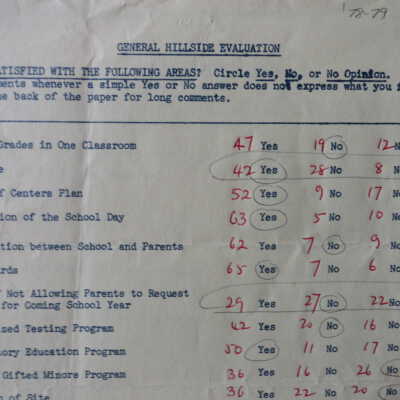 '78-79
GENERAL HILLSIDE EVALUATION
ATISFIED WITH THE FOLLOWING AREAS? Circle Yes, No, or No Opinion.
ments whenever a simple Yes or No answer does not express what you
e back of the paper for long comments.
Grades in One Classroom 47 Yes 19 No 12 N
e 42 Yes 28 No 8 N
f Centers Plan 52 Yes 9 No 17 N
ion of the School Day 63 Yes 5 No 10 N
tion between School and Parents 62 Yes 7 No 9 N
rds 65 Yes 7 No 6 N
f Not Allowing Parents to Request
for Coming School Year 29 Yes 27 No 22 N
zed Testing Program 42 Yes 20 No 16 N
ory Education Program 50 Yes 11 No 17 N
Gifted Minors Program 36 Yes 16 No 26 No
n of Site 36 Yes 22 No 20 No